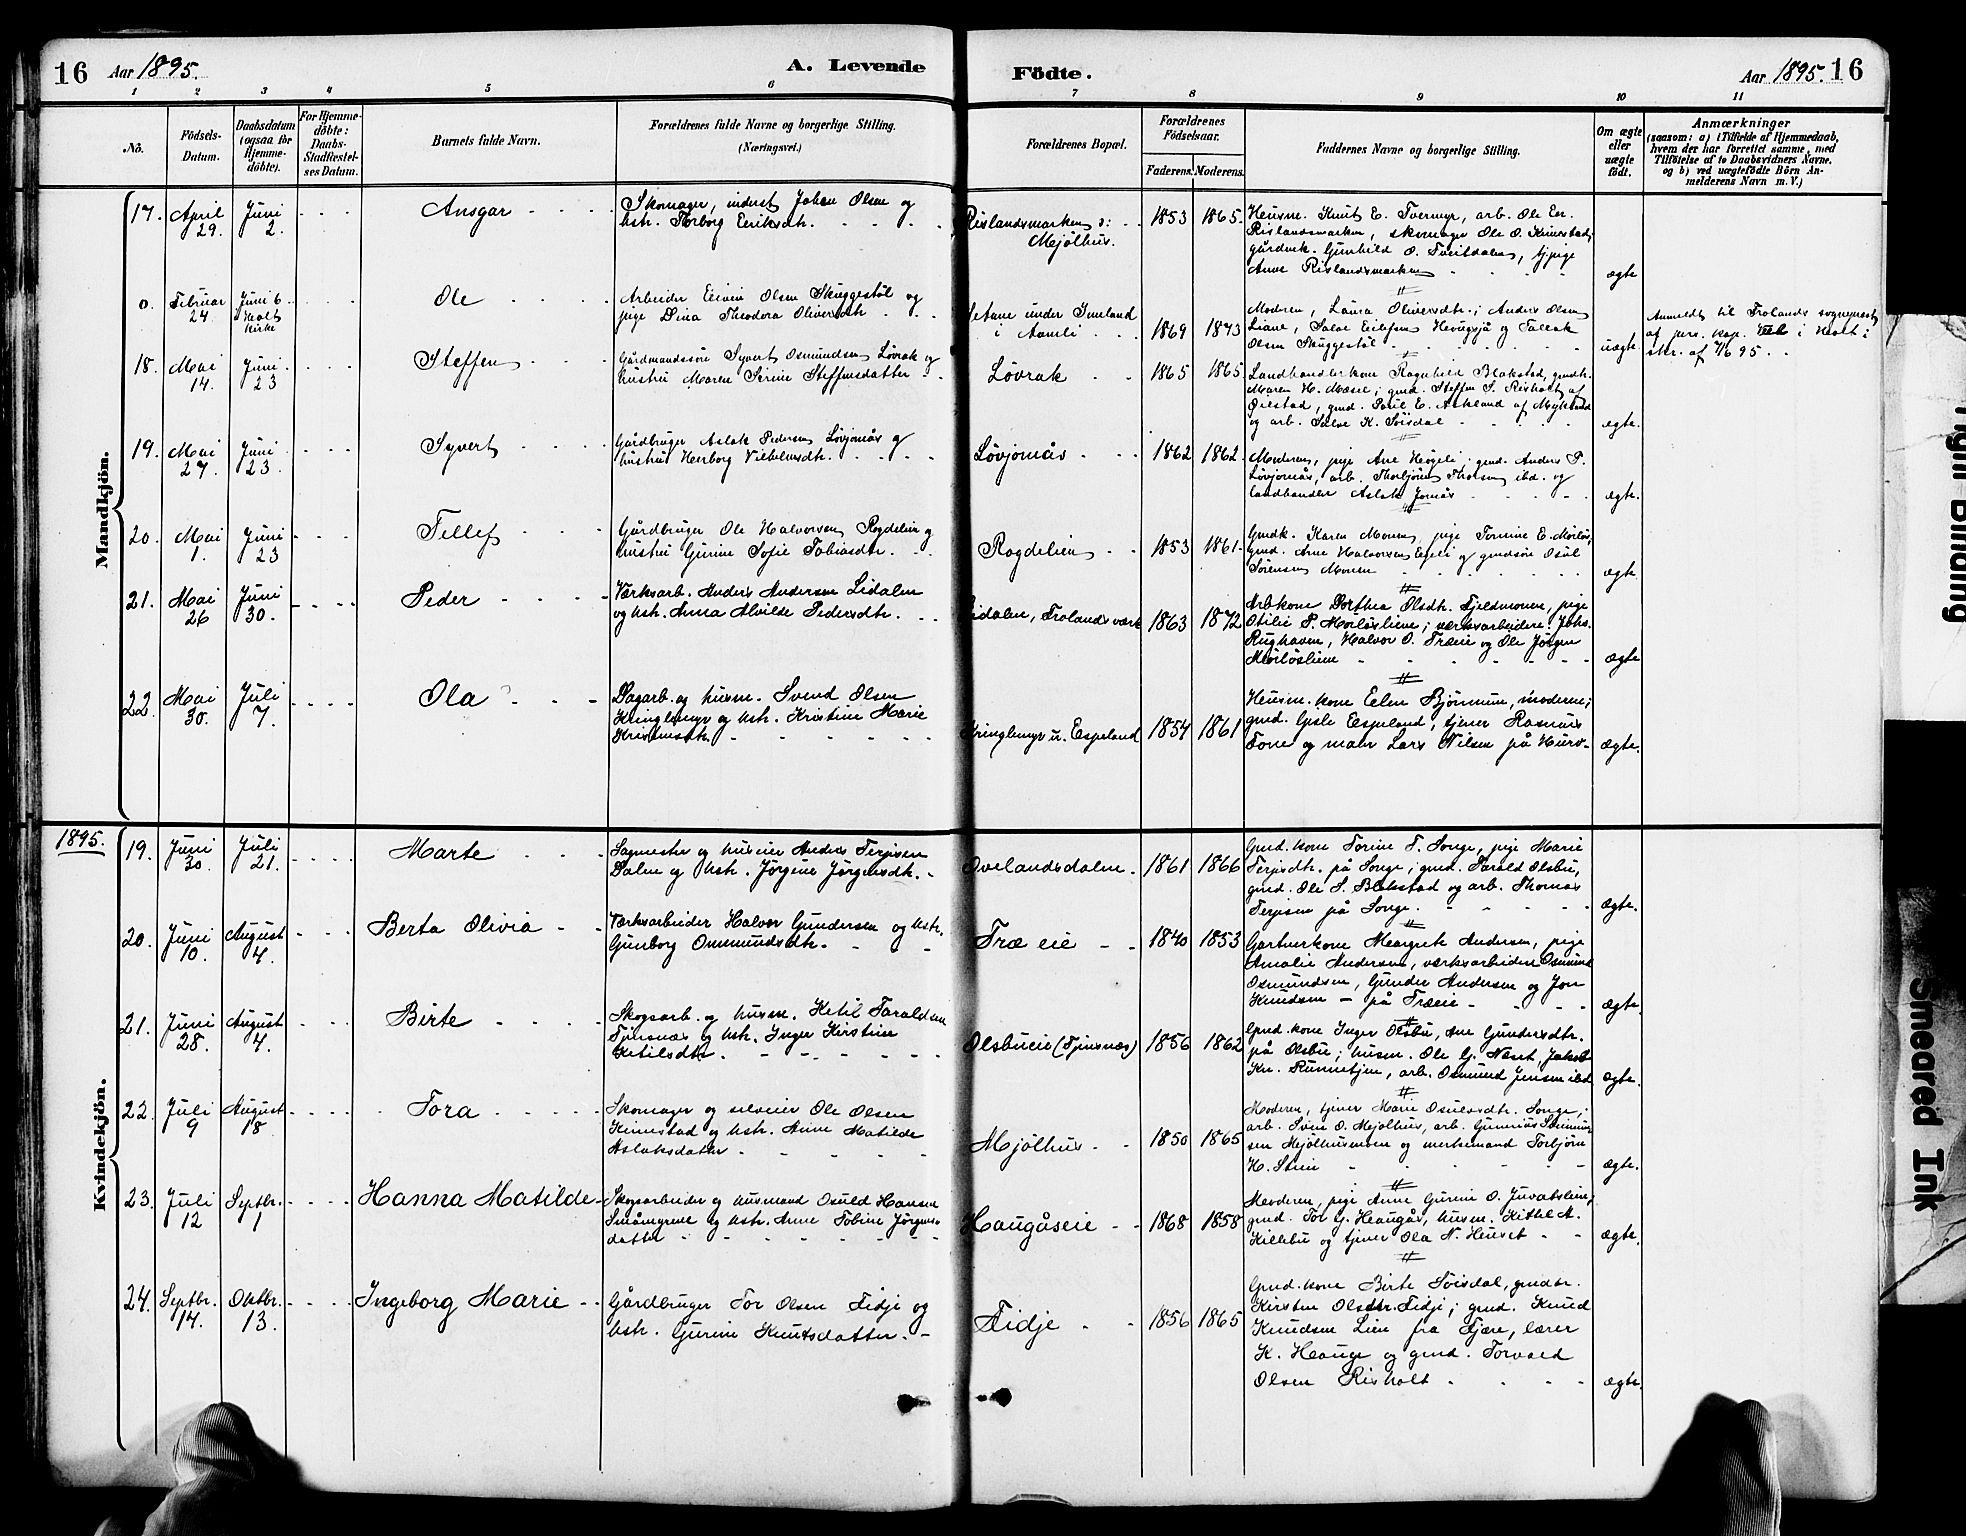 16 Aar 1895. A. Levende Födte. Aar 1895. 16
1 2 3 4 5 6 7 8 9 10 11
No.
Födsels-
Datum.
Daabsdatum
(ogsaa for
Hjemme-
döbte).
For Hjemme-
döbte:
Daabs-
Stadfæstel-
ses Datum.
Barnets fulde Navn.
Forældrenes fulde Navne og borgerlige Stilling.
(Næringsvei.)
Forældrenes Bopæl.
Forældrenes
Födselsaar.
Faderens. Moderens.
Faddernes Navne og borgerlige Stilling.
Om ægte
eller
uægte
födt.
Anmærkninger
(saasom: a) i Tilfælde af Hjemmedaab,
hvem der har forrettet samme, med
Tilföielse af to Daabsvidners Navne,
og b) ved uægtefödte Börn An-
melderens Navn m. V.)
Mandkjön.
17. April 29. Juni 2. Ansgar
Skomager, inderst Johan Olsen og
hstr. Torborg Eeriksdtr.
Rislandsmarken
Mjølhus.
1853 1865.
Husm. Knut E. Tvermyr, arb. Ole Er.
Rislandsmarken, skomager Ole O. Kimestad,
gårdbrk. Gunhild O. Tveitdalen, tj.pige
Anne Rislandsmarken
ægte
0. Februar 24 Juni 6 i Holt Kirke Ole
Arbeider Eivin Olsen Skuggestøl og
pige Dina Theodora Oliversdtr
under Smeland
i Aamli
1869 1873
Moderen, Laura Oliversdtr.; Anders Olsen
Liane, Salve Eilefsen Hougsjå og Tallak
Olsen Skuggestøl
uægte
Anmeldt til Frolands sogneprest
af pers. kap. i Holt i
skr. af 7/6 95.
18. Mai 14. Juni 23 Steffen
Gårdmandssøn Syvert Osmundsen Løvrak og
hustru Maren Serine Steffensdatter
Løvrak
1865 1865
Landhandlerkone Ragnhild Blakstad, gmdk.
Maren H. Mæsel; gmd. Steffen S. Risholt af
Øiestad, gmd. Poul E. Askland af Mykland
og arb. Salve K. Søisdal
ægte.
19. Mai 27. Juni 23. Syvert
Gårdbruger Aslak Pedersen Løvjomås og
hustru Herborg Vilhelmsdtr.
Løvjomås
1862 1862
Moderen, pige Ane Høgeli; gmd. Anders P.
Løvjomås, arb. Thorbjørn Thorsen ibd. og
landhandler Aslak Jomås
ægte.
20. Mai 1. Juni 23 Tellef
Gårdbruger Ole Halvorsen Rogdelien og
hustru Gurine Sofie Tobiasdtr.
Rogdelien
1853 1861
Gmdk. Karen Monen, pige Tomine E. Mørløs,
gmd. Arne Halvorsen Egeli og gmdsøn Osul
Sørensen Monen
ægte
21. Mai 26 Juni 30. Peder
Værksarb. Anders Andersen Lidalen
og hstr. Anna Alvilde Pedersdtr.
Lidalen, Frolands værk
1863 1872
Arb.kone Dorthea Olsdtr. Fjeldmonen, pige
Otilie P. Mørløsliene; værksarbeidere Johs.
Rughaven, Halvor O. Træeie og Ole Jørgen
Mørløsliene
ægte
22. Mai 30. Juli 7. Ola
Dagarb. og husm. Svend Olsen
Kringlemyr og hstr. Kristine Marie
Kringlemyr u. Espeland
1854 1861
Husm.kone Ellen Bjønmun, moderen;
gmd. Gisle Espeland, tjener Rasmus
Tone og maler Lars Nilsen på Hurv-
ægte.
Kvindekjön.
1895.
19. Juni 30. Juli 21. Marte
Sagmester og huseier Anders Terjesen
Dalen og hstr. Jørgine Jørgensdtr.
Ovelandsdalen.
1861 1866
Gmd.kone Torine T. Songe, pige Marie
Terjesdtr. på Songe; gmd. Tarald Olsbu,
gmd. Ole S. Blakstad og arb. Thomas
Terjesen på Songe.
ægte.
20. Juni 10. August 4. Berta Olivia
Værksarbeider Halvor Gundersen og hstr.
Gunborg Ommundsdtr.
Træeie
1840 1853
Gartnerkone Margrete Andersen, pige
Amalie Andersen, værksarbeidere Osmund
Osmundsen, Gunder Andersen og Jon
Knudsen – på Træeie
ægte.
21. Juni 28. August 4. Birte
Skogsarb. og husm. Ketil Taraldsen
Tjinsnæs og hstr. Inger Kirstine
Ketilsdtr.
Olsbueie (Tjinsnæs)
1856 1862
Gmd.kone Inger Olsbu, Ane Gundersdtr.
på Olsbu; husm. Ole G. Næset, Jakob
Kn. Runnetjen, arb. Osmund Jensen ibd
ægte.
22. Juli 9 August 18. Tora
Skomager og selveier Ole Olsen
Kimestad og hstr. Anne Matilde
Aslaksdatter
Mjølhus
1850 1865
Moderen, tjener Marie Osulvsdtr. Songe;
arb. Sven O. Mjølhus, arb. Gunerius
sen Mjølhusmoen og Torbjørn
H. Stien
ægte.
23. Juli 12 Septbr. 1 Hanna Matilde
Skogsarbeider og husmand Osuld Hansen
Småmyrene og hstr. Anne Tobine Jørgens-
datter
Haugåseie
1868 1858
Moderen, pige Anne Gurine O. Juvatsliene,
gmd. Tor G. Haugås, husm. Kittel A.
Killebu og tjener Ola N. Huset
ægte.
24. Septbr. 14. Oktbr. 13. Ingeborg Marie
Gårdbruger Tor Olsen Fidje og
hstr. Gurine Knutsdatter.
Fidje
1856 1865
Gmd.kone Birte Søisdal, gmdtr.
Kirsten Olsdtr. Fidje; gmd. Knud
Knudsen Lien fra Fjære, lærer
K. Hauge og gmd. Torvald
Olsen Risholt
ægte.
Tight Binding
Smeared Ink